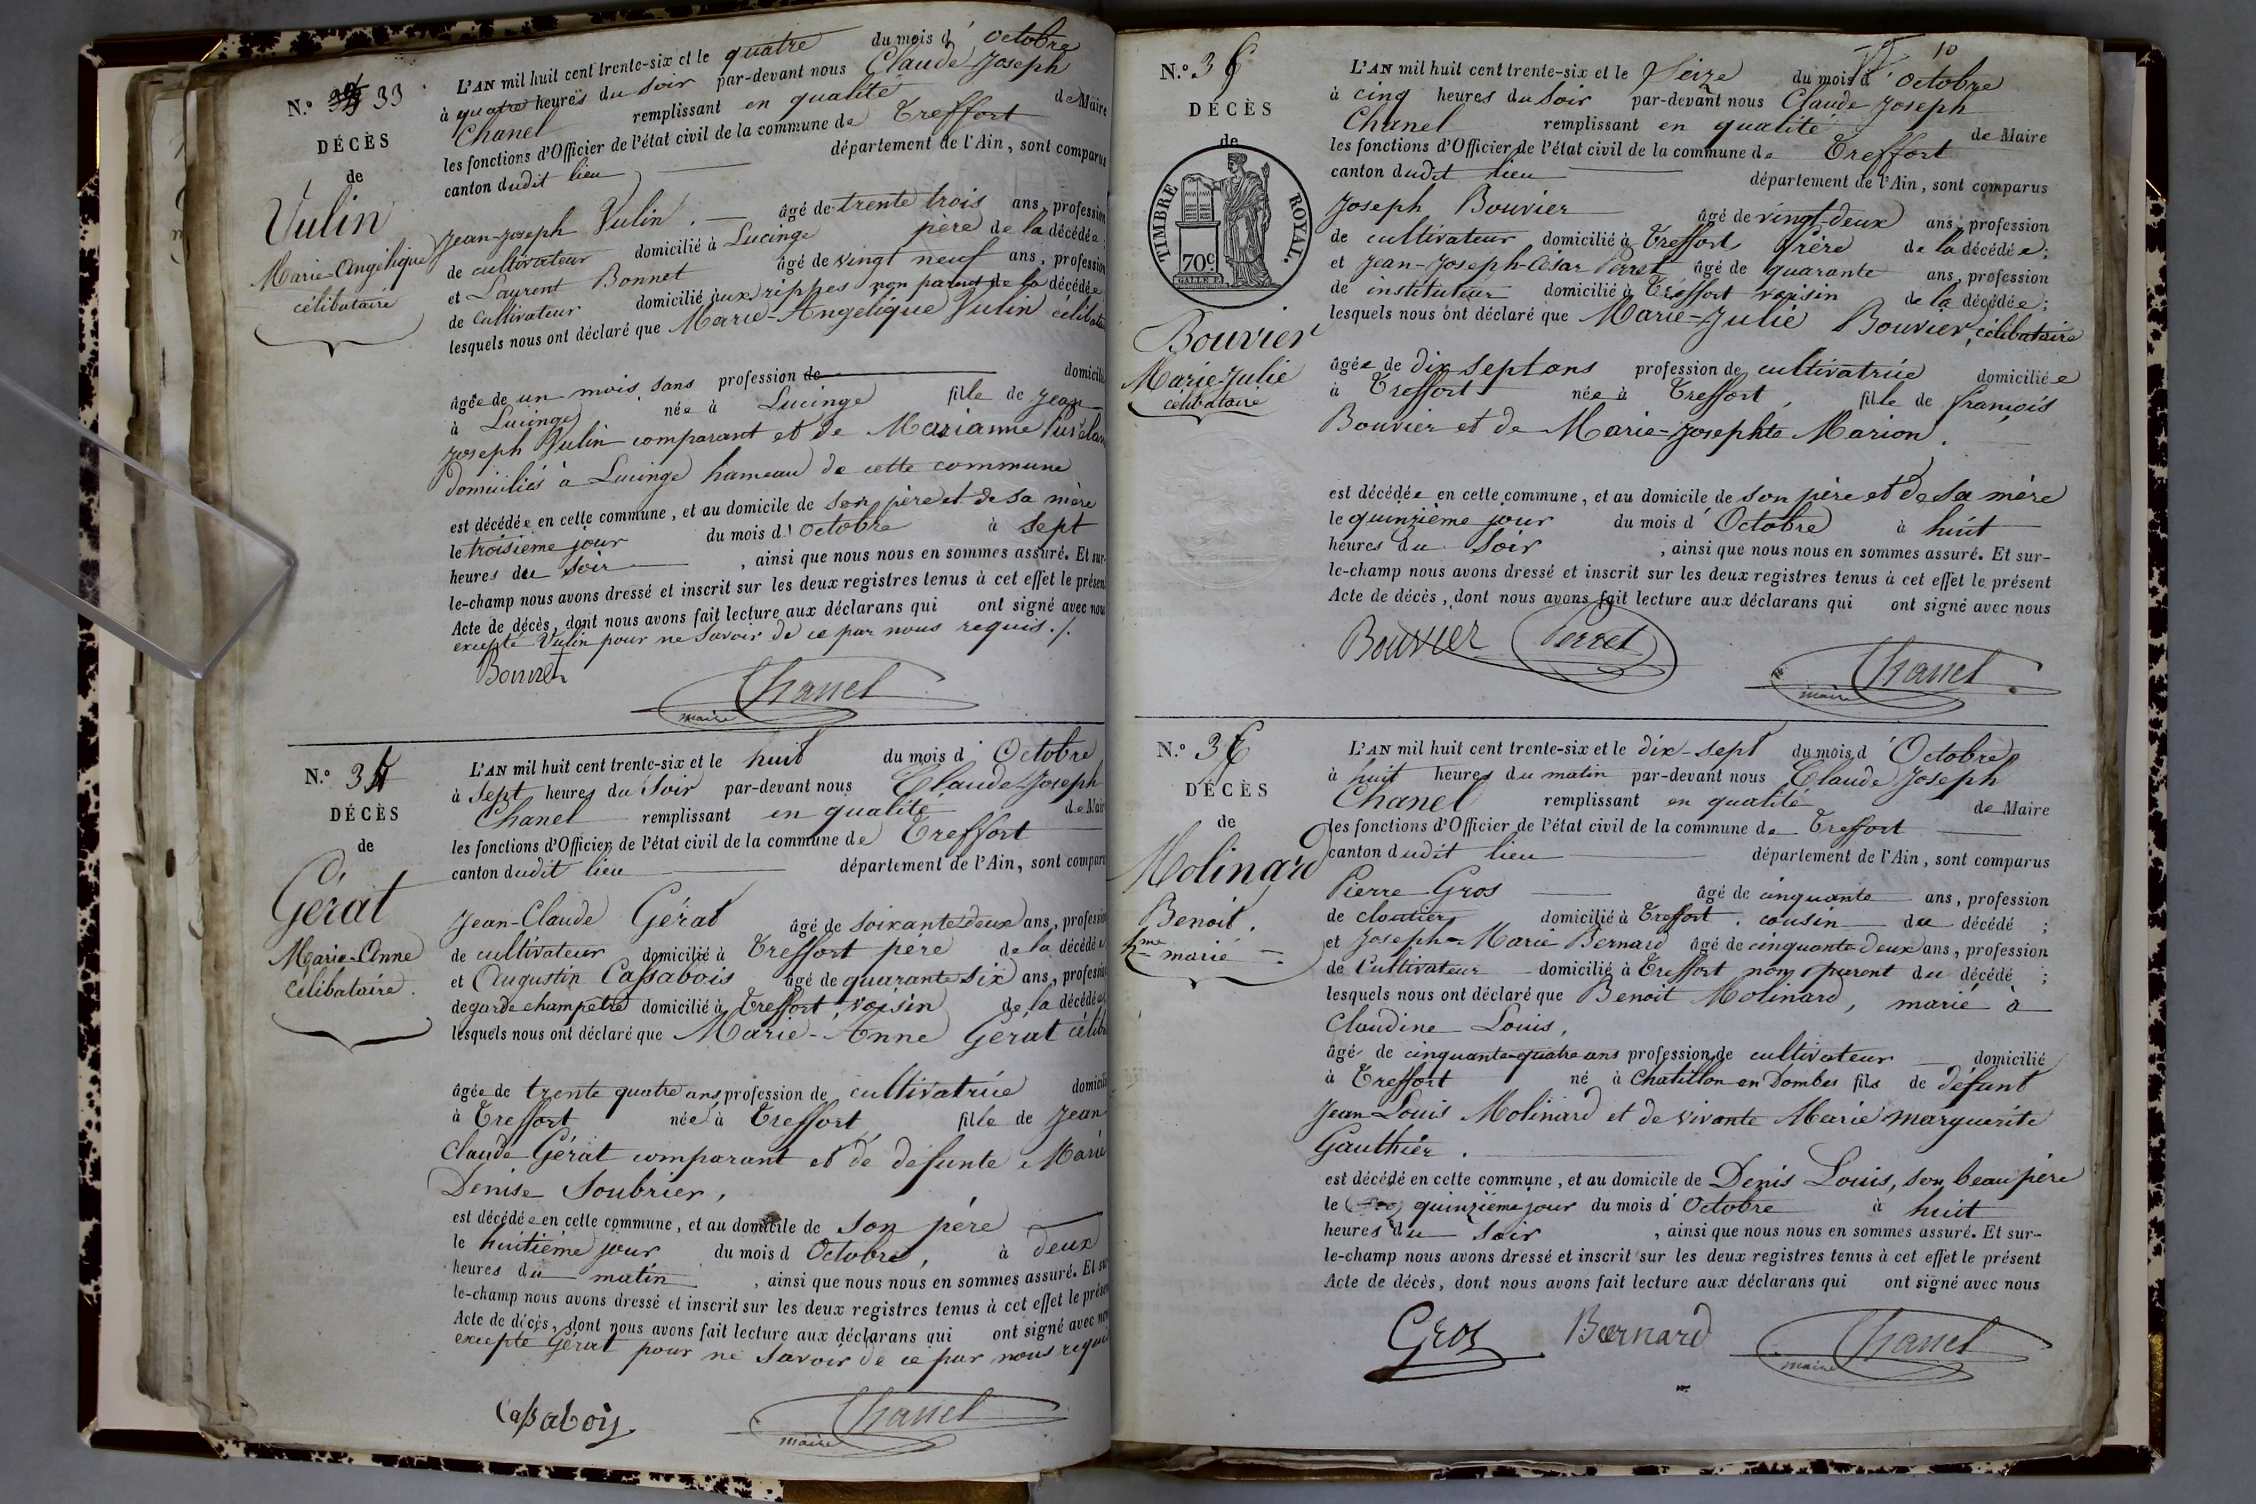 N.º 33
DÉCÈS
de
Vulin
Marie-Angélique
célibataire
L'AN mil huit cent trente-six et le quatre du mois d'octobre
à quatre heures du soir par-devant nous Claude Joseph
Chanel remplissant en qualité de Maire
les fonctions d'Officier de l'état civil de la commune de Treffort
canton dudit lieu département de l'Ain, sont comparus
Jean-Joseph Vulin. âgé de trente trois ans, profession
de cultivateur domicilié à Lucinge père de la décédée,
et Laurent Bonnet âgé de vingt neuf ans, profession
de Cultivateur domicilié aux rippes non parent de la décédée
lesquels nous ont déclaré que Marie-Angélique Vulin
âgée de un mois, sans profession de domicilié
à Lucinge née à Lucinge fille de Jean
Joseph Vulin comparant et de Marianne
domiciliés à Lucinge hameau de cette commune
est décédée en cette commune, et au domicile de son père et de sa mère
le troisième jour du mois d'octobre à sept
heures du soir, ainsi que nous nous en sommes assuré. Et sur-
le-champ nous avons dressé et inscrit sur les deux registres tenus à cet effet le présent
Acte de décès, dont nous avons fait lecture aux déclarans qui ont signé avec nous
excepté Vulin pour ne savoir de ce par nous requis./.
Bonnet
Chanel
maire
N.º 34
DÉCÈS
de
Gérat
Marie-Anne
célibataire.
L'AN mil huit cent trente-six et le huit du mois d'Octobre
à Sept heures du Soir par-devant nous Claude-Joseph
Chanel remplissant en qualité de Maire
les fonctions d'Officier de l'état civil de la commune de Treffort
canton dudit lieu département de l'Ain, sont comparus
Jean-Claude Gérat âgé de soixante deux ans, profession
de cultivateur domicilié à Treffort père de la décédée
et Augustin Cassabois âgé de quarante six ans, profession
de garde champêtre domicilié à Treffort, voisin de la décédée,
lesquels nous ont déclaré que Marie-Anne Gérat
âgée de trente quatre ans profession de cultivatrice domicilié
à Treffort née à Treffort fille de Jean
Claude Gérat comparant et de défunte Marie
Denise Soubrier,
est décédée en cette commune, et au domicile de son père
le huitième jour du mois d'Octobre, à deux
heures du matin, ainsi que nous nous en sommes assuré. Et sur-
le-champ nous avons dressé et inscrit sur les deux registres tenus à cet effet le présent
Acte de décès, dont nous avons fait lecture aux déclarans qui ont signé avec nous
excepté Gérat pour ne savoir de ce par nous requis
Cassabois
Chanel
maire
10
N.º 35
DÉCÈS
de
TIMBRE ROYAL.
70c.
Bouvier
Marie-Julie
célibataire
L'AN mil huit cent trente-six et le Seize du mois d'Octobre
à cinq heures du Soir par-devant nous Claude Joseph
Chanel remplissant en qualité de Maire
les fonctions d'Officier de l'état civil de la commune de Treffort
canton dudit lieu département de l'Ain, sont comparus
Joseph Bouvier âgé de vingt-deux ans, profession
de cultivateur domicilié à Treffort frère de la décédée;
et Jean-Joseph-César Perret âgé de quarante ans, profession
de instituteur domicilié à Treffort voisin de la décédée;
lesquels nous ont déclaré que Marie-Julie Bouvier, célibataire
âgée de dix sept ans profession de cultivatrice domiciliée
à Treffort née à Treffort, fille de françois
Bouvier et de Marie-Josephte Marion.
est décédée en cette commune, et au domicile de son père et de sa mère
le quinzième jour du mois d'Octobre à huit
heures du Soir, ainsi que nous nous en sommes assuré. Et sur-
le-champ nous avons dressé et inscrit sur les deux registres tenus à cet effet le présent
Acte de décès, dont nous avons fait lecture aux déclarans qui ont signé avec nous
Bouvier Perret
Chanel
maire
N.º 36
DÉCÈS
de
Molinard
Benoit.
hme marié
L'AN mil huit cent trente-six et le dix-sept du mois d'Octobre
à huit heures du matin par-devant nous Claude Joseph
Chanel remplissant en qualité de Maire
les fonctions d'Officier de l'état civil de la commune de Treffort
canton dudit lieu département de l'Ain, sont comparus
Pierre Gros âgé de cinquante ans, profession
de cloutier domicilié à Treffort. cousin du décédé;
et Joseph-Marie Bernard âgé de cinquante deux ans, profession
de Cultivateur domicilié à Treffort non parent du décédé;
lesquels nous ont déclaré que Benoit Molinard, marié à
Claudine Louis,
âgé de cinquante-quatre ans profession de cultivateur domicilié
à Treffort né à Chatillon en Dombes fils de défunt
Jean Louis Molinard et de vivante Marie Marguerite
Gauthier.
est décédé en cette commune, et au domicile de Denis Louis, son beau père
le quinzième jour du mois d'Octobre à huit
heures du Soir, ainsi que nous nous en sommes assuré. Et sur-
le-champ nous avons dressé et inscrit sur les deux registres tenus à cet effet le présent
Acte de décès, dont nous avons fait lecture aux déclarans qui ont signé avec nous
Gros Bernard
Chanel
maire